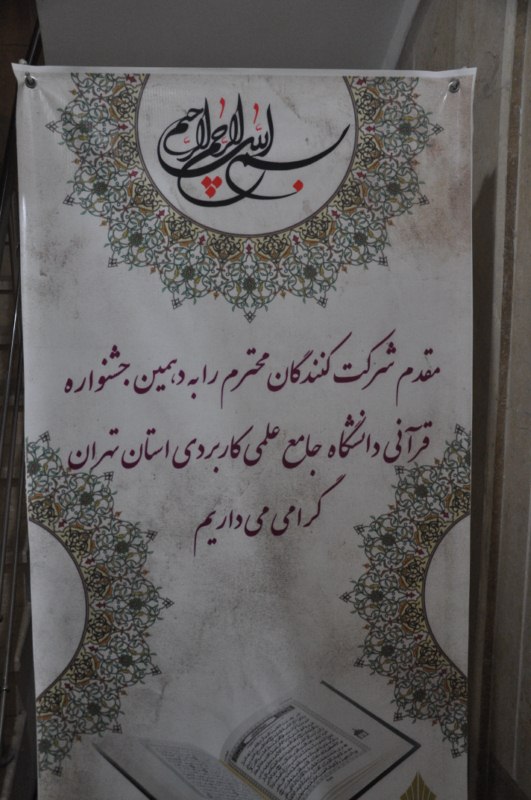 بسم الله الرحمن الرحیم
مقدم شرکت کنندگان محترم را به دهمین جشنواره
قرآنی دانشگاه جامع علمی کاربردی استان تهران
گرامی می داریم